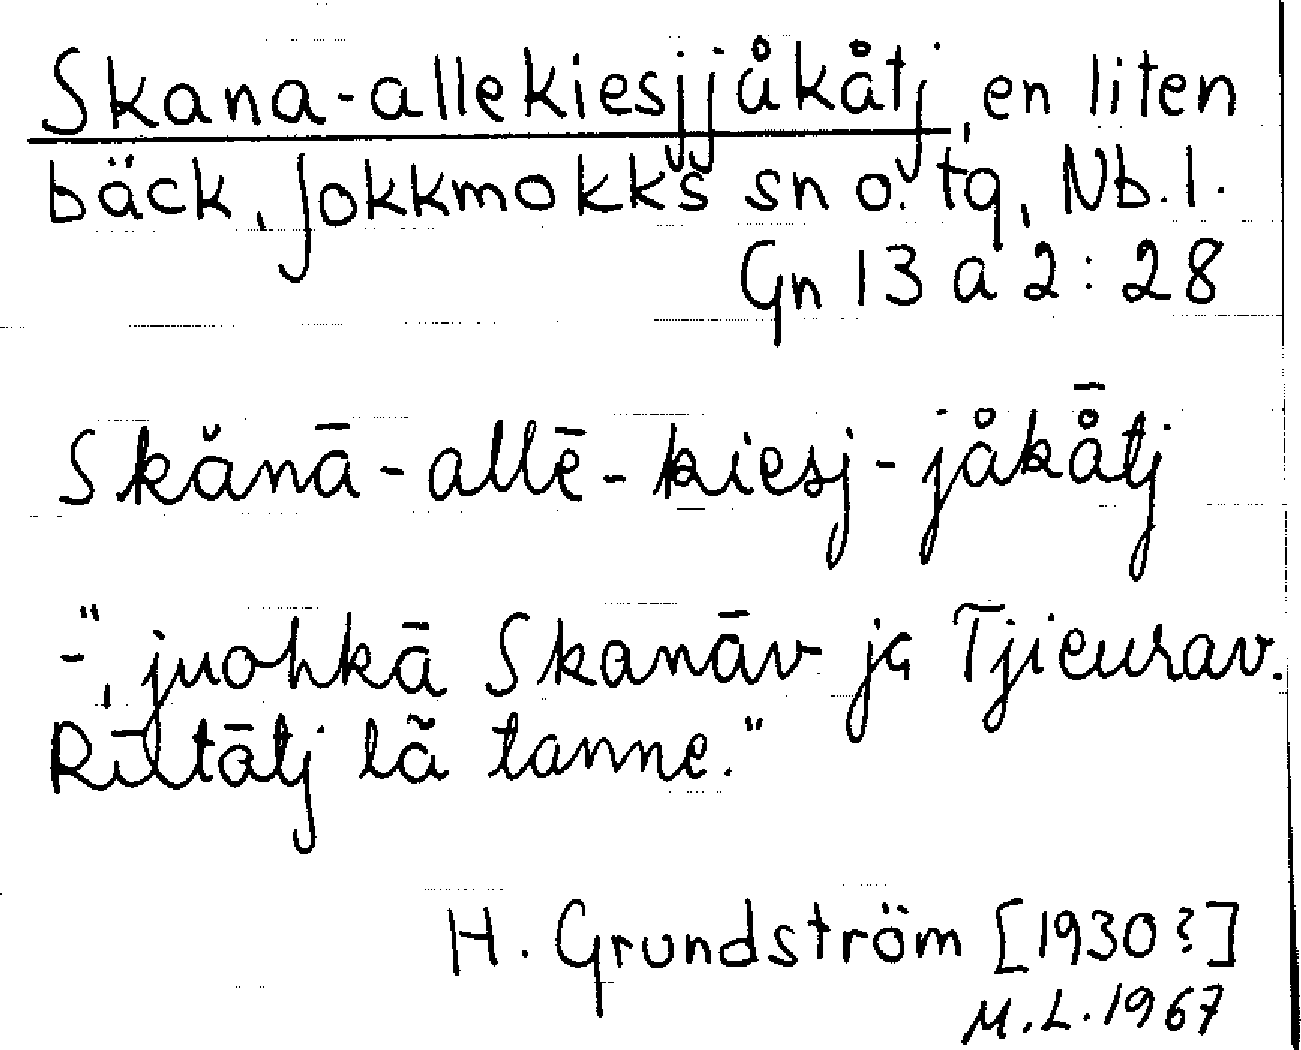 Skana-allekiesjjåkåtj, en liten
bäck, Jokkmokks sn o. tg, Nb. l.
Gn 13 a 2 : 28
Skănā-allē-kiesj-jåkå̄tj
-", juohkā Skanāv ja Tjieurav.
Rīttātj lã tanne."
H. Grundström [1930?]
M.L. 1967